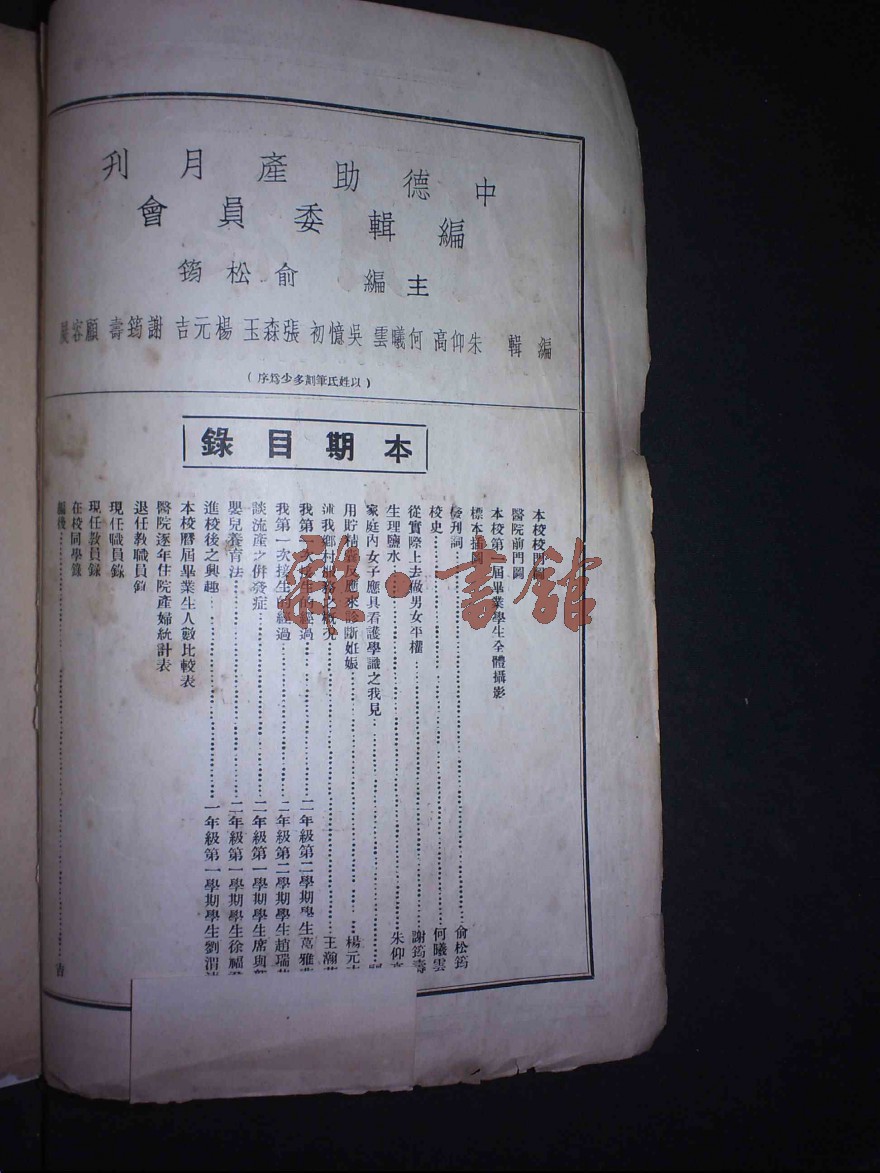 中德助產月刊
編輯委員會
主編 俞松筠
編輯 朱仰高 何曦雲 吳憶初 張森玉 楊元吉 謝筠壽 顧容
(以姓氏筆劃多少爲序)
本期目錄
本校校門
醫院前門圖
本校第 屆畢業學生全體攝影
標本插圖
發刊詞 俞松筠
校史 何曦雲
從實際上去做男女平權 謝筠壽
生理鹽水 朱仰高
家庭內女子應具看護學識之我見
用貯精 反應來診斷妊娠 楊元
鄉村服務之概況 王瀚
我第一次接生的經過 二年級第二學期學生葛雅
我第一次接生的經過 二年級第二學期學生趙瑞
談流產之併發症 二年級第一學期學生席與
嬰兒養育法 二年級第一學期學生徐福
進校後之興趣 一年級第一學期學生劉渭
本校曆屆畢業生人數比較表
醫院逐年住院產婦統計表
退任教職員錄
現任職員錄
現任教員錄
在校同學錄
編後 吉
雜·書館